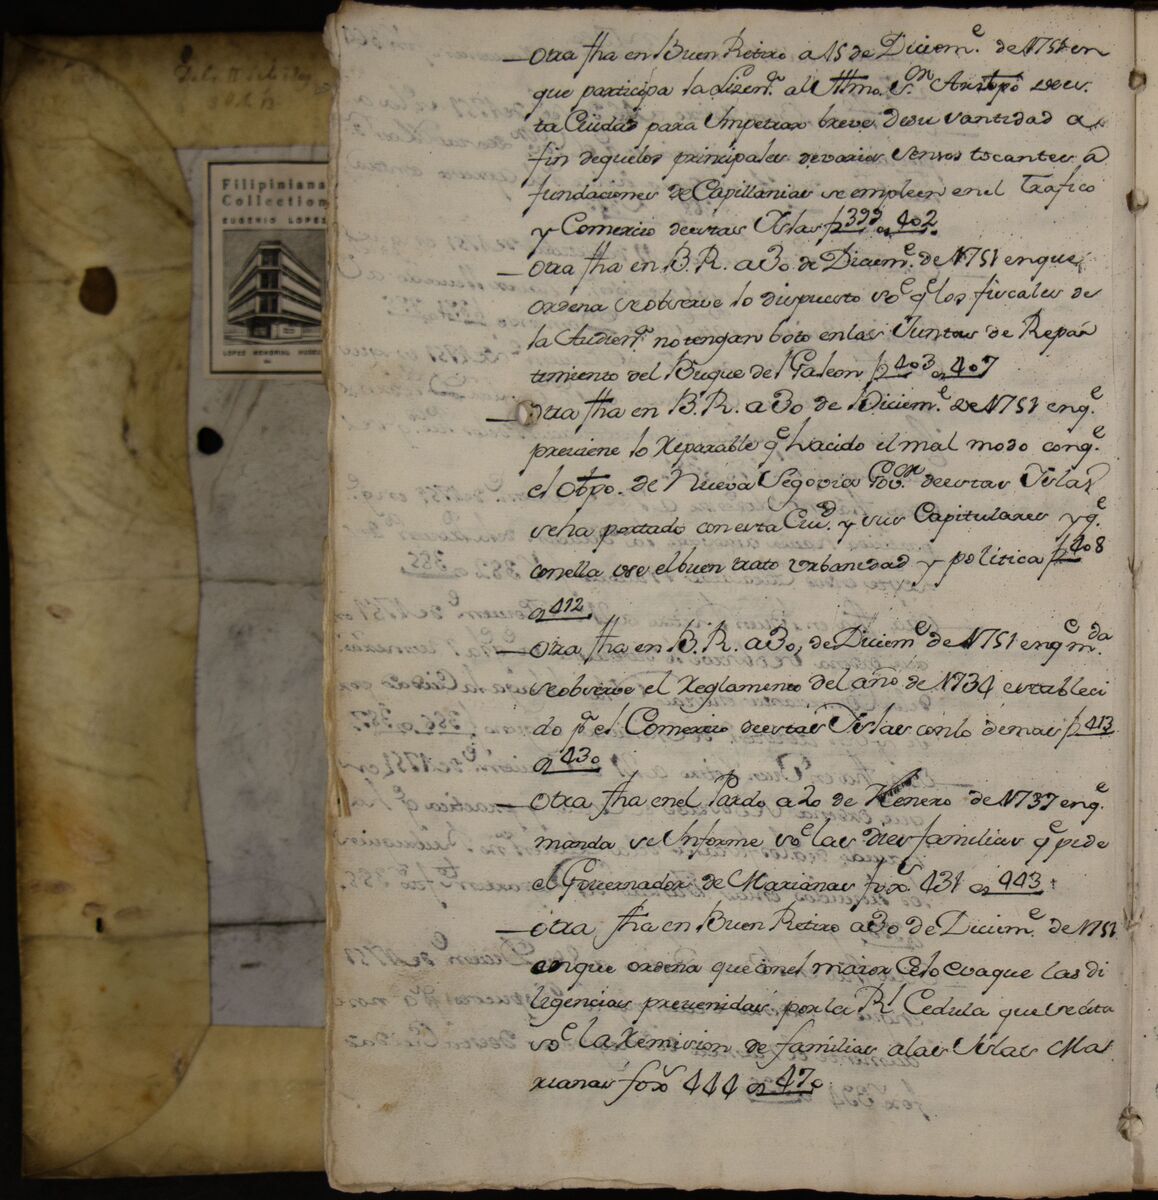 Filipiniana
Collection
EUGENIO LOPEZ
LOPEZ MEMORIAL MUSEUM
— Otra fha en Buen Retiro a 15 de Diciem.e de 1751 en
que participa la Lizen.a al Yltmo. S.or Arzbpo de es
ta Ciudad para Ympetrar breve de su Santidad a
fin de q.e los principales de varios Sensos tocantes a
fundaciones de Capillanias se empleen en el trafico
y Comercio de estas Yslas f 399 a 402.
— Otra fha en B. R. a 30 de Diciem.e de 1751 en que
ordena se observe lo dispuesto so.e q.e los fiscales de
la Audien.a no tengan boto en las Juntas de Repar
timiento del Buque del Galeon f 403 a 407
— Otra fha en B. R. a 30 de Diciem.e de 1751 en q.e
previene lo Reparable q.e ha cido el mal modo con q.e
el Obpo. de Nueva Segovia Gov.or de estas Yslas
se ha portado con esta Ciu.d y sus Capitulares y q.e
con ella use el buen trato urbanidad y politica f 408
a 412
— Otra fha en B. R. a 30, de Diciem.e de 1751 en q.e m.da
se observe el Reglamento del año de 1734 estableci
do p.a el Comercio de estas Yslas con lo demas f 413
a 430
— Otra fha en el Pardo a 20 de Henero de 1737 en q.e
manda se Ynforme so.e las dies familias q.e pide
el Governador de Marianas fox. 431 a 443
— Otra fha en Buen Retiro a 30 de Diciem.e de 1751
en que ordena que con el maior Celo evaque las di
ligencias prevenidas por la R.l Cedula que se cita
so.e la Remision de familias a las Yslas Ma
rianas fox 444 a 470